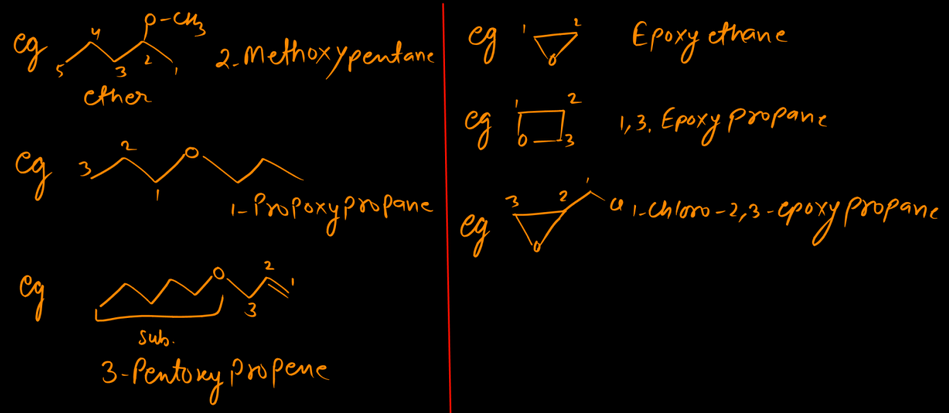 eg
O-CH3
5 4 3 2 1
2-Methoxypentane
ether
eg
3 2 1 O
1-Propoxypropane
eg
O 3 2 1
sub.
3-Pentoxypropene
eg
1 2 O
Epoxyethane
eg
1 2 O 3
1,3. Epoxypropane
eg
3 2 1 O Cl
1-chloro-2,3-epoxypropane